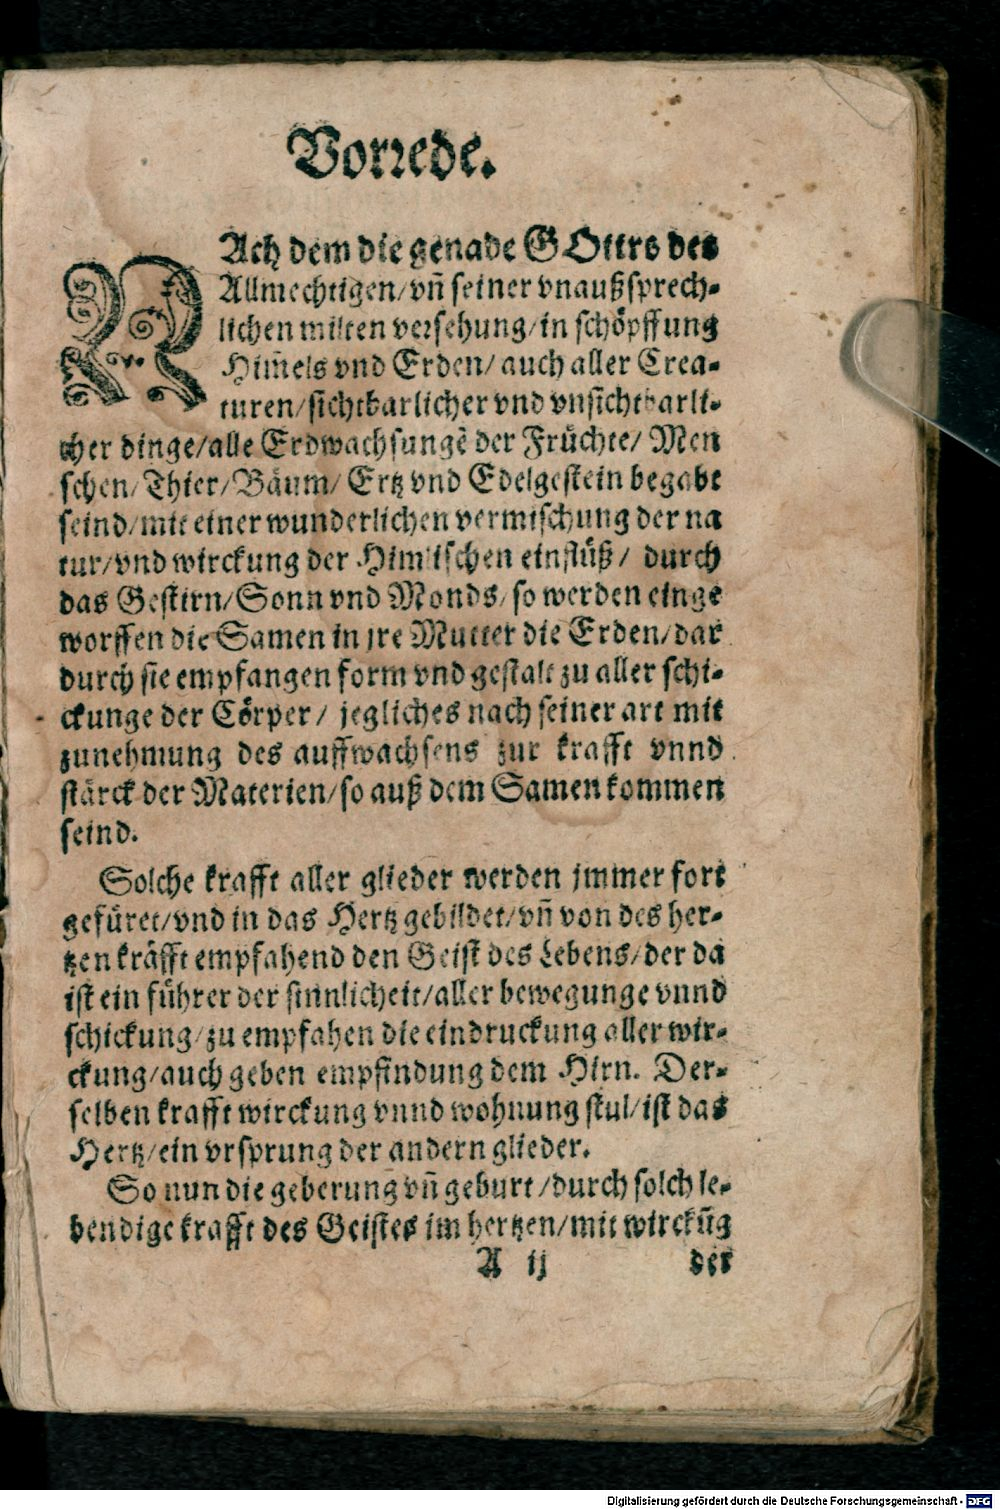 Vorrede.
NAch dem die genade GOttes des
Allmechtigen/ vñ seiner vnaußsprech-
lichen milten versehung/ in schöpffung
Him̃els vnd Erden/ auch aller Crea-
turen/ sichtbarlicher vnd vnsichtbarli-
cher dinge/ alle Erdwachsungẽ der Früchte/ Men
schen/ Thier/ Bäum/ Ertz vnd Edelgestein begabt
seind/ mit einer wunderlichen vermischung der na
tur/ vnd wirckung der Himlischen einflüß/ durch
das Gestirn/ Sonn vnd Monds/ so werden einge
worffen die Samen in jre Mutter die Erden/ dar
durch sie empfangen form vnd gestalt zu aller schi-
ckunge der Cörper/ jegliches nach seiner art mit
zunehmung des auffwachsens zur krafft vnnd
stärck der Materien/ so auß dem Samen kommen
seind.
Solche krafft aller glieder werden jmmer fort
gefüret/ vnd in das Hertz gebildet/ vñ von des her-
tzen kräfft empfahend den Geist des Lebens/ der da
ist ein führer der sinnlicheit/ aller bewegunge vnnd
schickung/ zu empfahen die eindruckung aller wir-
ckung/ auch geben empfindung dem Hirn. Der-
selben krafft wirckung vnnd wohnung stul/ ist das
Hertz/ ein vrsprung der andern glieder.
So nun die geberung vñ geburt/ durch solch le-
bendige krafft des Geistes im hertzen/ mit wirckũg
A ij der
Digitalisierung gefördert durch die Deutsche Forschungsgemeinschaft - DFG